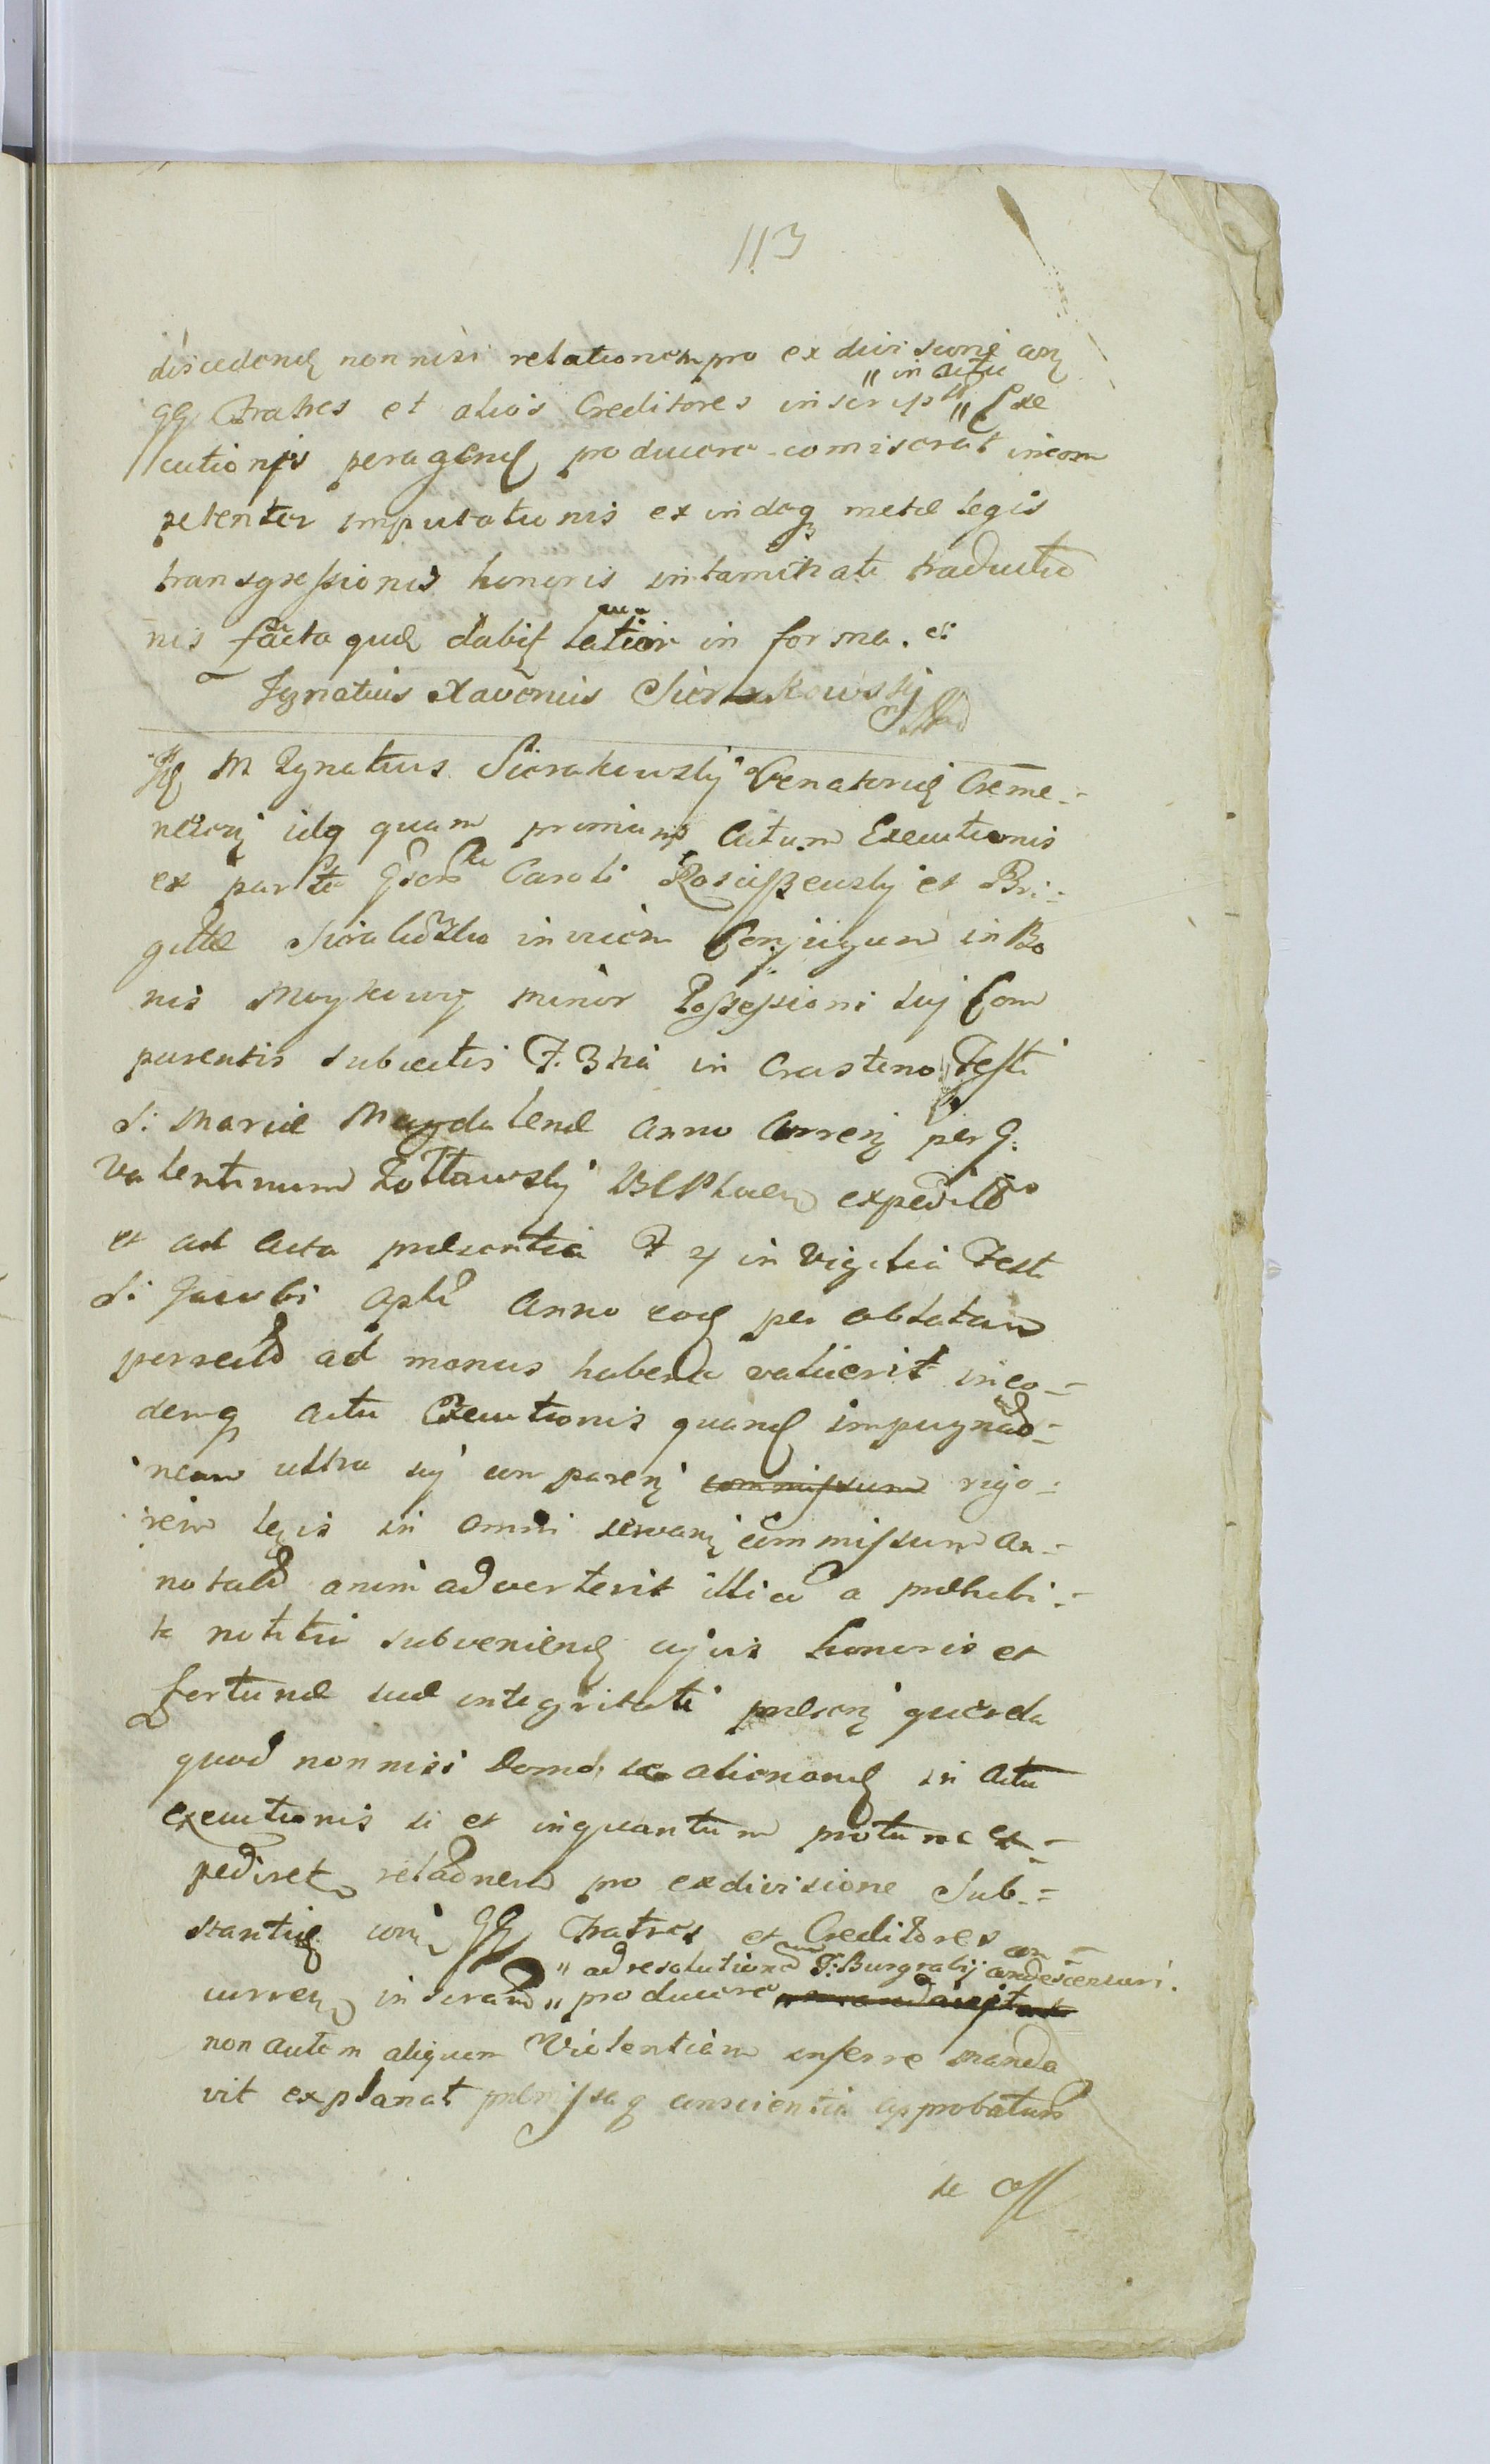 113
discedend nonnisi relationem pro ex divisione con
GG Fratres et alios Creditores inscript " in actu " Exe
cutionis peragend producere comiserat incom
petenter imputationis exindeq metæ legis
transgressionis honoris intaminati traductio
nis facta quæ dabit latior in forma. et
Ignatius Xaverius Sierakowskj
M Ignatius Sierakowskj Venatorid Creme-
necen idq quam primum Actum Executionis
ex parte Gsorum Caroli Rosciszewskj et Bri-
gittæ Sierakowska invicem Conjugum in Bo
nis Moykowy minor Possessioni suj Com
parentis subiectis F. 3tia in Crastino Festi
S: Mariæ Magdalenæ Anno Curren per G.
Valentinum Zoltawskj expedito
et ad Acta præsentia F 4 in Vigilia Festi
S: Jacobi Apli Anno eod per oblatam
perrectd ad manus habere valuerit in eo-
demq actu Executionis quand impugnad-
nem ultra suj comparen commissum rigo-
rem legis in omni servan commissum an-
notatd animadverterit illico a præhabi-
ta notitia subveniend cujus honoris et
fortunæ suæ integritati præsen querela
quod nonnisi Domo se alienand in Actu
executionis si et inquantum protunc ex-
pediret relaonem pro exdivisione Sub-
stantiæ con GG Fratres et Creditores con-
" ad resolutionem F: Burgrabij condescensuri.
curren inserand " producere
non autem aliquam Violentiam inferre manda
vit explanat præmissaq conscientia approbatum
se off